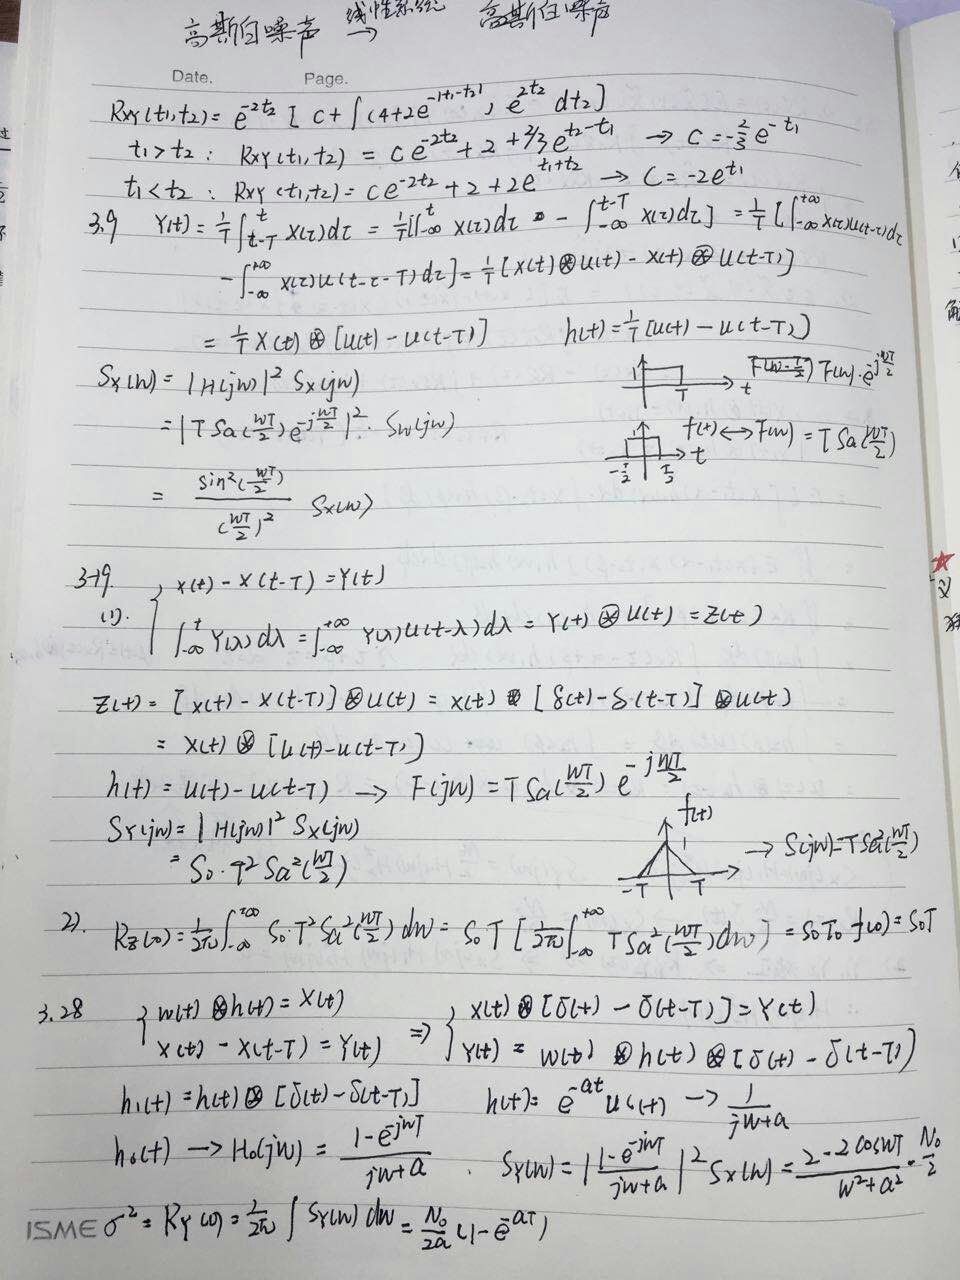 高斯白噪声 线性系统 → 高斯白噪声
Date. Page.
Rxy(t₁,t₂) = e^{-2t₂} [ c + ∫(4+2e^{-|t₁-t₂|}) e^{2t₂} dt₂ ]
t₁>t₂ : Rxy(t₁,t₂) = ce^{-2t₂} + 2 + 2/3 e^{t₂-t₁} → C = -2/3 e^{-t₁}
t₁<t₂ : Rxy(t₁,t₂) = ce^{-2t₂} + 2 + 2e^{t₁+t₂} → C = -2e^{t₁}
3.9 Y(t) = 1/T ∫_{t-T}^{t} X(τ)dτ = 1/T [∫_{-∞}^{t} X(τ)dτ - ∫_{-∞}^{t-T} X(τ)dτ] = 1/T [∫_{-∞}^{+∞} X(τ)u(t-τ)dτ
- ∫_{-∞}^{+∞} X(τ)u(t-τ-T)dτ] = 1/T [X(t)⊗u(t) - X(t)⊗u(t-T)]
= 1/T X(t) ⊗ [u(t) - u(t-T)] h(t) = 1/T [u(t) - u(t-T)]
Sx(w) = |H(jw)|² Sx(jw) 1 T t F(w)·e^{-j wT/2}
= |T Sa(wT/2) e^{-j wT/2}|² · Sw(jw) -T/2 T/2 t f(t) ↔ F(w) = T Sa(wT/2)
= sin²(wT/2) / (wT/2)² Sx(w)
3.19. x(t) - x(t-T) = Y(t)
(1). ∫_{-∞}^{t} Y(λ)dλ = ∫_{-∞}^{+∞} Y(λ)u(t-λ)dλ = Y(t) ⊗ u(t) = Z(t)
Z(t) = [x(t) - x(t-T)] ⊗ u(t) = x(t) ⊗ [δ(t) - δ(t-T)] ⊗ u(t)
= x(t) ⊗ [u(t) - u(t-T)]
h(t) = u(t) - u(t-T) → F(jw) = T Sa(wT/2) e^{-j wT/2}
SY(jw) = |H(jw)|² Sx(jw) f(t) 1
= S₀·T² Sa²(wT/2) -T T → S(jw) = T Sa²(wT/2)
2). Rz(0) = 1/2π ∫_{-∞}^{+∞} S₀·T² Sa²(wT/2) dw = S₀T [1/2π ∫_{-∞}^{+∞} T Sa²(wT/2) dw] = S₀T₀ f(0) = S₀T
3.28 { w(t) ⊗ h(t) = X(t) ⇒ { X(t) ⊗ [δ(t) - δ(t-T)] = Y(t)
X(t) - X(t-T) = Y(t) Y(t) = w(t) ⊗ h(t) ⊗ [δ(t) - δ(t-T)]
h₁(t) = h(t) ⊗ [δ(t) - δ(t-T)] h(t) = e^{-at} u(t) → 1/(jw+a)
h₀(t) → H₀(jw) = (1-e^{-jwT})/(jw+a) . SY(w) = |(1-e^{-jwT})/(jw+a)|² Sx(w) = (2-2coswT)/(w²+a²) · N₀/2
ISME σ² = RY(0) = 1/2π ∫ SY(w) dw = N₀/2a (1-e^{-aT})